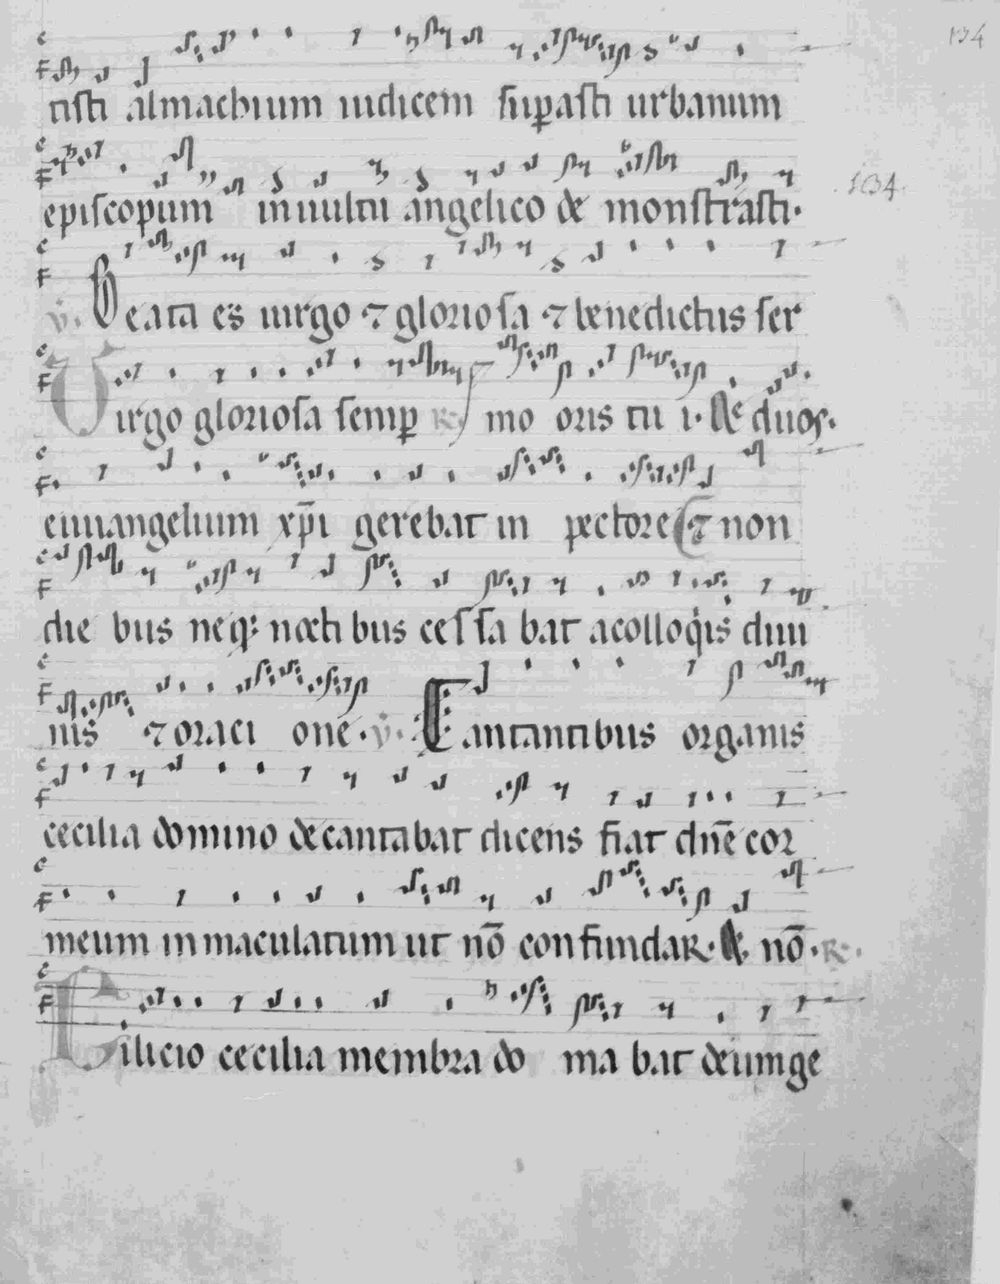 134
tisti almachium iudicem sup̱asti urbanum
episcopum in uultu angelico de monstrasti·
134.
v̇. Beata es uirgo ⁊ gloriosa ⁊ benedictus ser
Uirgo gloriosa semp̱ R· mo oris tu i· Ae duoꝝ·
euuangelium xp̄i gerebat in pectore ⁊ non
die bus neq; nocti bus ces sa bat acolloqis diui
nis ⁊ oraci one· v̇· Cantantibus organis
cecilia domino decantabat dicens fiat dn̄e cor
meum inmaculatum ut nō confundar· A nō· R·
Cilicio cecilia membra do ma bat deum ge